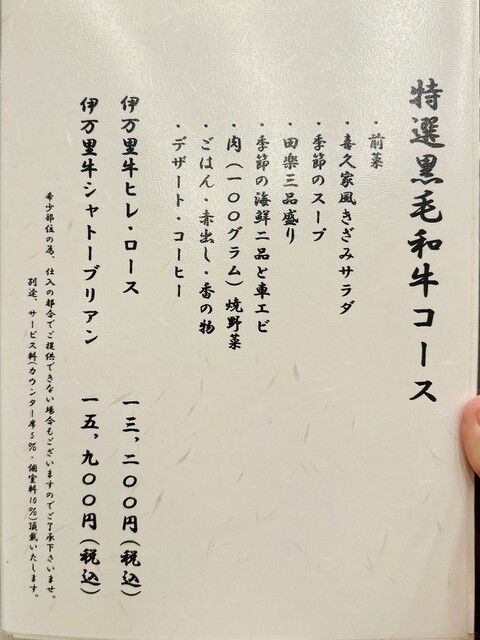 特選黒毛和牛コース
・前菜
・喜久家風きざみサラダ
・季節のスープ
・田楽三品盛り
・季節の海鮮二品と車エビ
・肉(一〇〇グラム)焼野菜
・ごはん・赤出し・香の物
・デザート・コーヒー
伊万里牛ヒレ・ロース 一三,二〇〇円(税込)
伊万里牛シャトーブリアン 一五,九〇〇円(税込)
希少部位の為、仕入の都合でご提供できない場合もございますのでご了承下さいませ。
別途、サービス料(カウンター席5%・個室料10%)頂戴いたします。